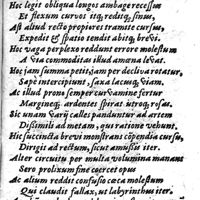 Hoc legit obliqua longos ambage recessus
Et flexum curvos itq; redítq; sinus,
Ast aliud recto propiores tramite cursus,
Expedit & spatio tendit abitq; brevi.
Hoc vaga perplexo reddunt errore molestum
A via commoditas illud amœna levat.
Hoc jam summa petit, jam per declive rotatur,
Sæpe intercipiunt, saxa lacusq; viam.
Ac illud prono semper curvamine fertur
Margine; ardentes spirat utroq; rosas.
Sic unam varij calles panduntur ad artem
Dissimili ad metam, qui ratione vehunt.
Hic succincta brevi monstrans cōpendia cursu,
Dirgit ad rectum, sicut amussis iter.
Alter circuitu per multa volumina manans
Sero prolixum fine coercet opus
Ac alium reddit confusio cæca molestum
Qui claudit fallax, ut labyrinthus iter.